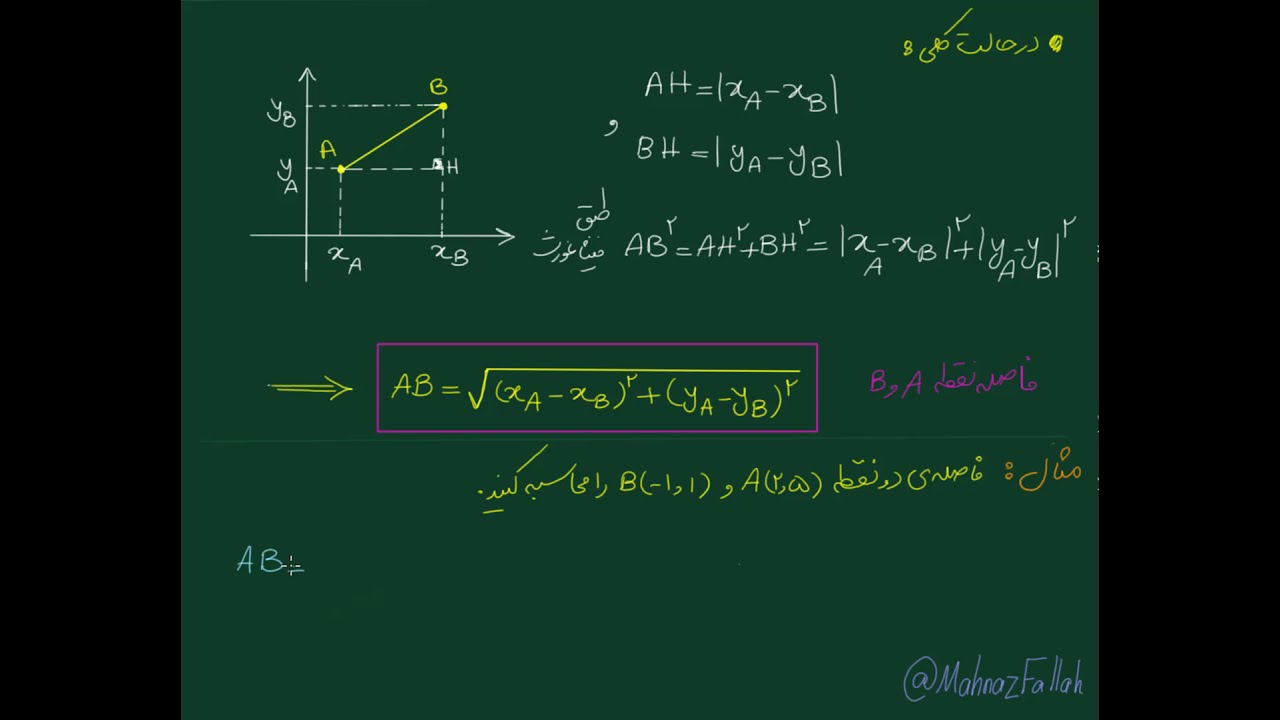 • در حالت کلی :
y_B
B
AH = |x_A - x_B|
,
A
y_A
H
BH = |y_A - y_B|
طبق
فیثاغورث AB^۲ = AH^۲ + BH^۲ = |x_A - x_B|^۲ + |y_A - y_B|^۲
x_A
x_B
⟹ AB = √((x_A - x_B)^۲ + (y_A - y_B)^۲)
فاصله نقطه A و B
مثال : فاصله‌ی دو نقطه A(۲,۵) و B(-۱,۱) را محاسبه کنید.
AB=
@MahnazFallah